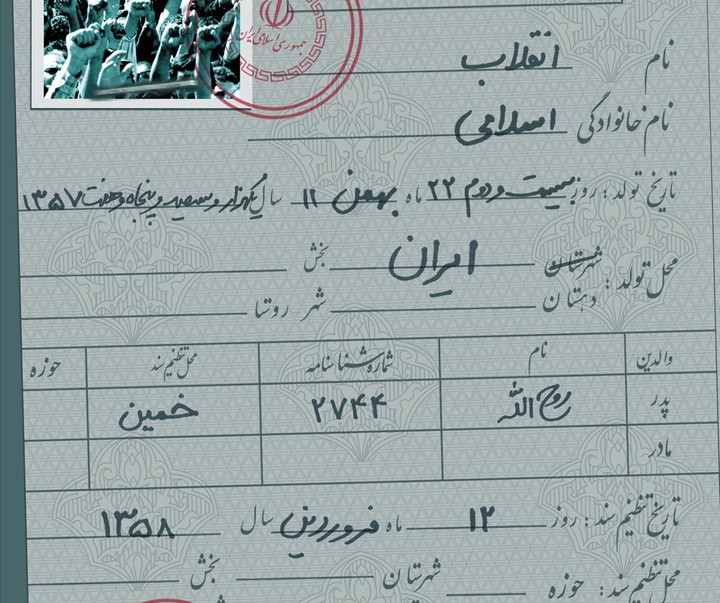 جمهوری اسلامی ایران
نام انقلاب
نام خانوادگی اسلامی
تاریخ تولد : روز بیست و دوم ۲۲ ماه بهمن ۱۱ سال یکهزار و سیصد و پنجاه و هفت ۱۳۵۷
محل تولد : شهرستان ایران بخش
دهستان شهر روستا
والدین نام شماره شناسنامه محل تنظیم سند حوزه
پدر روح الله ۲۷۴۴ خمین
مادر
تاریخ تنظیم سند : روز ۱۲ ماه فروردین سال ۱۳۵۸
محل تنظیم سند : حوزه شهرستان بخش